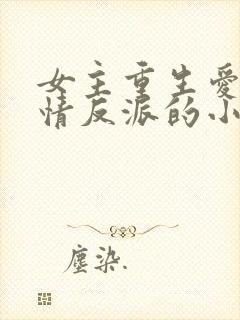 女主重生愛
情反派的小
塵染.